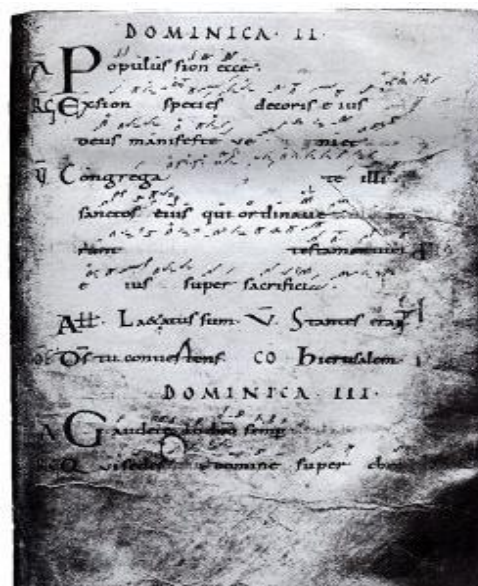 DOMINICA · II ·
A Populus sion ecce.
RG Exsion species decoris eius
deus manifeste ve niet
V Congrega te illi
sanctos eius qui ordinave
runt testamentum
e ius super sacrificia
All. Laetatus sum. V. Stantes erant
OF Ds tu convertens CO hierusalem
DOMINICA · III ·
A Gaudete in dno semp
RG Qui sedes domine super che